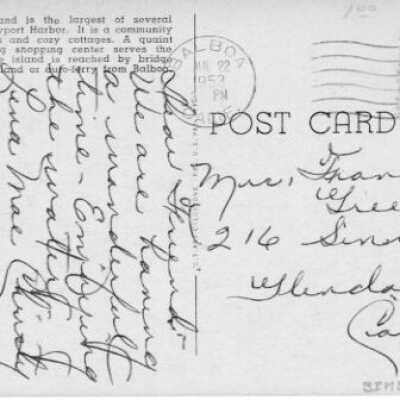 and is the largest of several
wport Harbor. It is a community
s and cozy cottages. A quaint
ng shopping center serves the
e island is reached by bridge
land or auto-ferry from Balboa.
BALBOA
22
1952
PM
CALIF
1.00
POST CARD
Dear Friend -
We are having
a wonderful
time - Enjoying
the water
Lena Mae
Mrs. Fran
216
Glenda
Ca